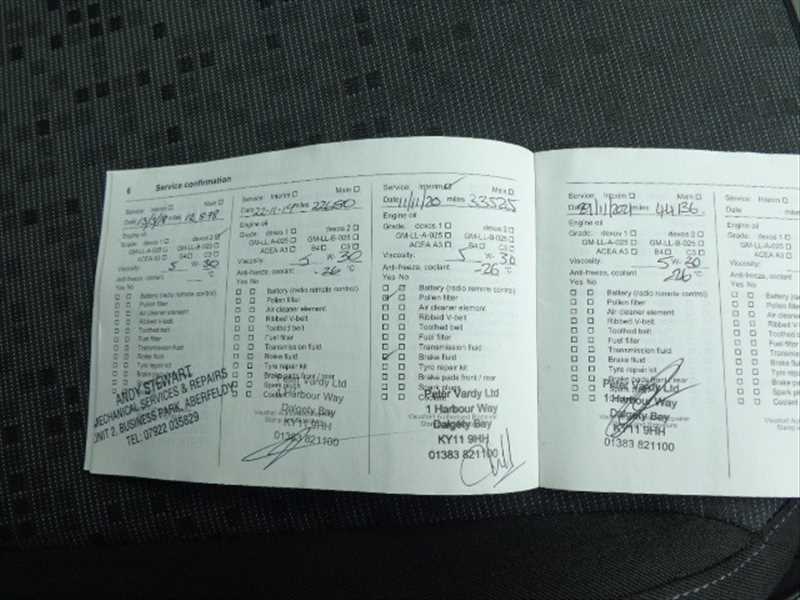 6 Service confirmation
Service: Interim Main
Date 13/9/18 miles 12,898
Engine oil
Grade: dexos 1 dexos 2
GM-LL-A-025 GM-LL-B-025
ACEA A3 B4 C3
Viscosity: 5 W- 30
Anti-freeze, coolant °C
Yes No
Battery (radio remote control)
Pollen filter
Air cleaner element
Ribbed V-belt
Toothed belt
Fuel filter
Transmission fluid
Brake fluid
Tyre repair kit
ANDY STEWART
MECHANICAL SERVICES & REPAIRS
UNIT 2, BUSINESS PARK, ABERFELDY
TEL: 07922 035829
Service: Interim Main
Date 22-11-19 miles
Engine oil
Grade: dexos 1 dexos 2
GM-LL-A-025 GM-LL-B-025
ACEA A3 B4 C3
Viscosity: 5 W- 30
Anti-freeze, coolant: -26 °C
Yes No
Battery (radio remote control)
Pollen filter
Air cleaner element
Ribbed V-belt
Toothed belt
Fuel filter
Transmission fluid
Brake fluid
Tyre repair kit
Brake pads front / rear
Peter Vardy Ltd
1 Harbour Way
Dalgety Bay
KY11 9HH
01383 821100
Service: Interim Main
Date 11/11/20 miles 33525
Engine oil
Grade: dexos 1 dexos 2
GM-LL-A-025 GM-LL-B-025
ACEA A3 B4 C3
Viscosity: 5 W- 30
Anti-freeze, coolant: -26 °C
Yes No
Battery (radio remote control)
Pollen filter
Air cleaner element
Ribbed V-belt
Toothed belt
Fuel filter
Transmission fluid
Brake fluid
Tyre repair kit
Brake pads front / rear
Spark plugs
Peter Vardy Ltd
1 Harbour Way
Dalgety Bay
KY11 9HH
01383 821100
Service: Interim Main
Date /11/2021 miles 44136
Engine oil
Grade: dexos 1 dexos 2
GM-LL-A-025 GM-LL-B-025
ACEA A3 B4 C3
Viscosity: 5 W- 30
Anti-freeze, coolant: -26 °C
Yes No
Battery (radio remote control)
Pollen filter
Air cleaner element
Ribbed V-belt
Toothed belt
Fuel filter
Transmission fluid
Brake fluid
Tyre repair kit
Brake pads front / rear
Peter Vardy Ltd
1 Harbour Way
Dalgety Bay
KY11 9HH
01383 821100
Service: Interim
Date
Engine oil
Grade: dexos 1
GM-LL-A-025
ACEA A3
Viscosity:
Anti-freeze, coolant
Yes No
Battery (radio
Pollen filter
Air cleaner
Ribbed V-belt
Toothed belt
Fuel filter
Transmission
Brake fluid
Tyre repair kit
Brake pads
Spark plugs
Coolant